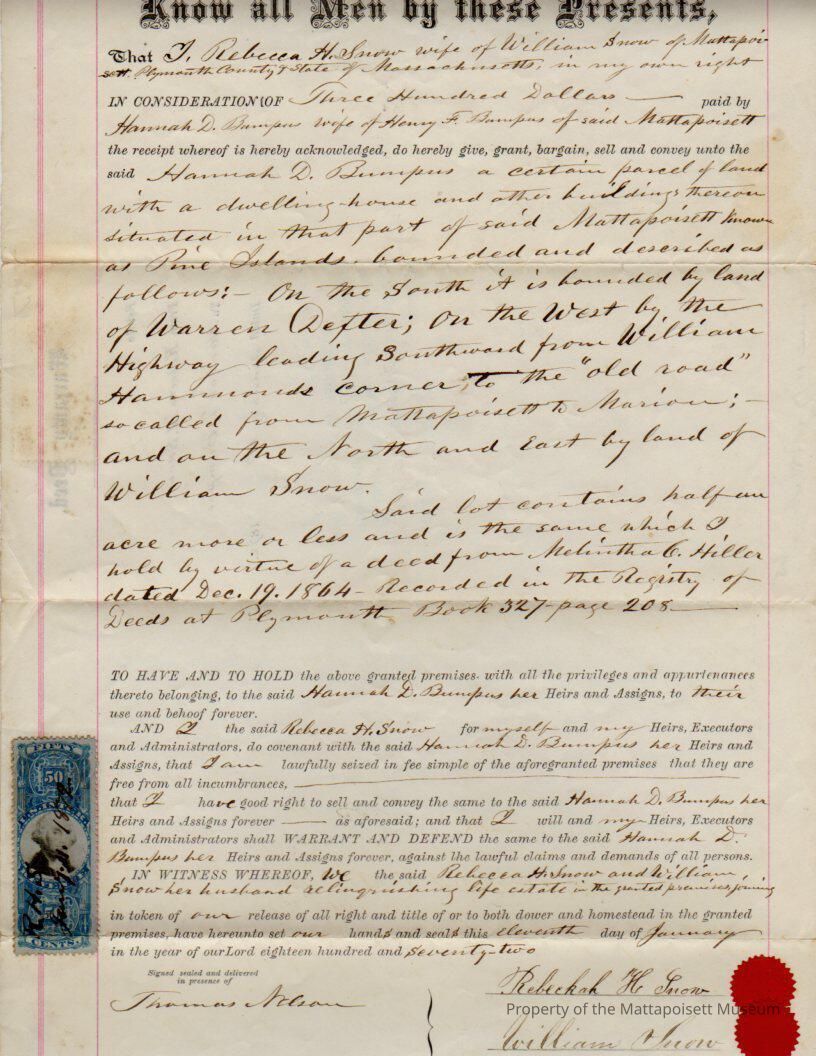 Know all Men by these Presents,
That I, Rebecca H. Snow wife of William Snow of Mattapoi-
sett, Plymouth County & State of Massachusetts, in my own right
IN CONSIDERATION OF Three Hundred Dollars paid by
Hannah D. Bumpus wife of Henry F. Bumpus of said Mattapoisett
the receipt whereof is hereby acknowledged, do hereby give, grant, bargain, sell and convey unto the
said Hannah D. Bumpus a certain parcel of land
with a dwelling-house and other buildings thereon
situated in that part of said Mattapoisett known
as Pine Islands, bounded and described as
follows:- On the South it is bounded by land
of Warren Dexter; On the West by the
Highway leading Southward from William
Hammonds corner, to the "old road"
so called from Mattapoisett to Marion;-
and on the North and East by land of
William Snow.
Said lot contains half an
acre more or less and is the same which I
hold by virtue of a deed from Melintha C. Hiller
dated Dec. 19. 1864 - Recorded in the Registry of
Deeds at Plymouth Book 327-page 208
TO HAVE AND TO HOLD the above granted premises, with all the privileges and appurtenances
thereto belonging, to the said Hannah D. Bumpus her Heirs and Assigns, to their
use and behoof forever.
AND I the said Rebecca H. Snow for myself and my Heirs, Executors
and Administrators, do covenant with the said Hannah D. Bumpus her Heirs and
Assigns, that I am lawfully seized in fee simple of the aforegranted premises that they are
free from all incumbrances,
that I have good right to sell and convey the same to the said Hannah D. Bumpus her
Heirs and Assigns forever as aforesaid; and that I will and my Heirs, Executors
and Administrators shall WARRANT AND DEFEND the same to the said Hannah D.
Bumpus her Heirs and Assigns forever, against the lawful claims and demands of all persons.
IN WITNESS WHEREOF, We the said Rebecca H. Snow and William,
Snow her husband relinquishing life estate in the granted premises joining
in token of our release of all right and title of or to both dower and homestead in the granted
premises, have hereunto set our hands and seals this eleventh day of January
in the year of our Lord eighteen hundred and seventy-two
Signed sealed and delivered
in presence of
Thomas Nelson
Rebeckah H Snow
William Snow
FIFTY
50
R.H.S.
Jany. 11. 1872
CENTS.
Property of the Mattapoisett Museum